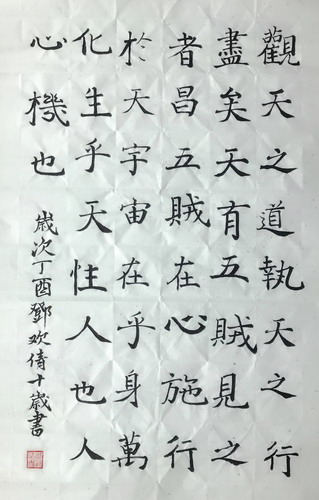 觀天之道執天之行
盡矣天有五賊見之
者昌五賊在心施行
於天宇宙在乎身萬
化生乎天性人也人
心機也
歲次丁酉鄧欢倚十歲書